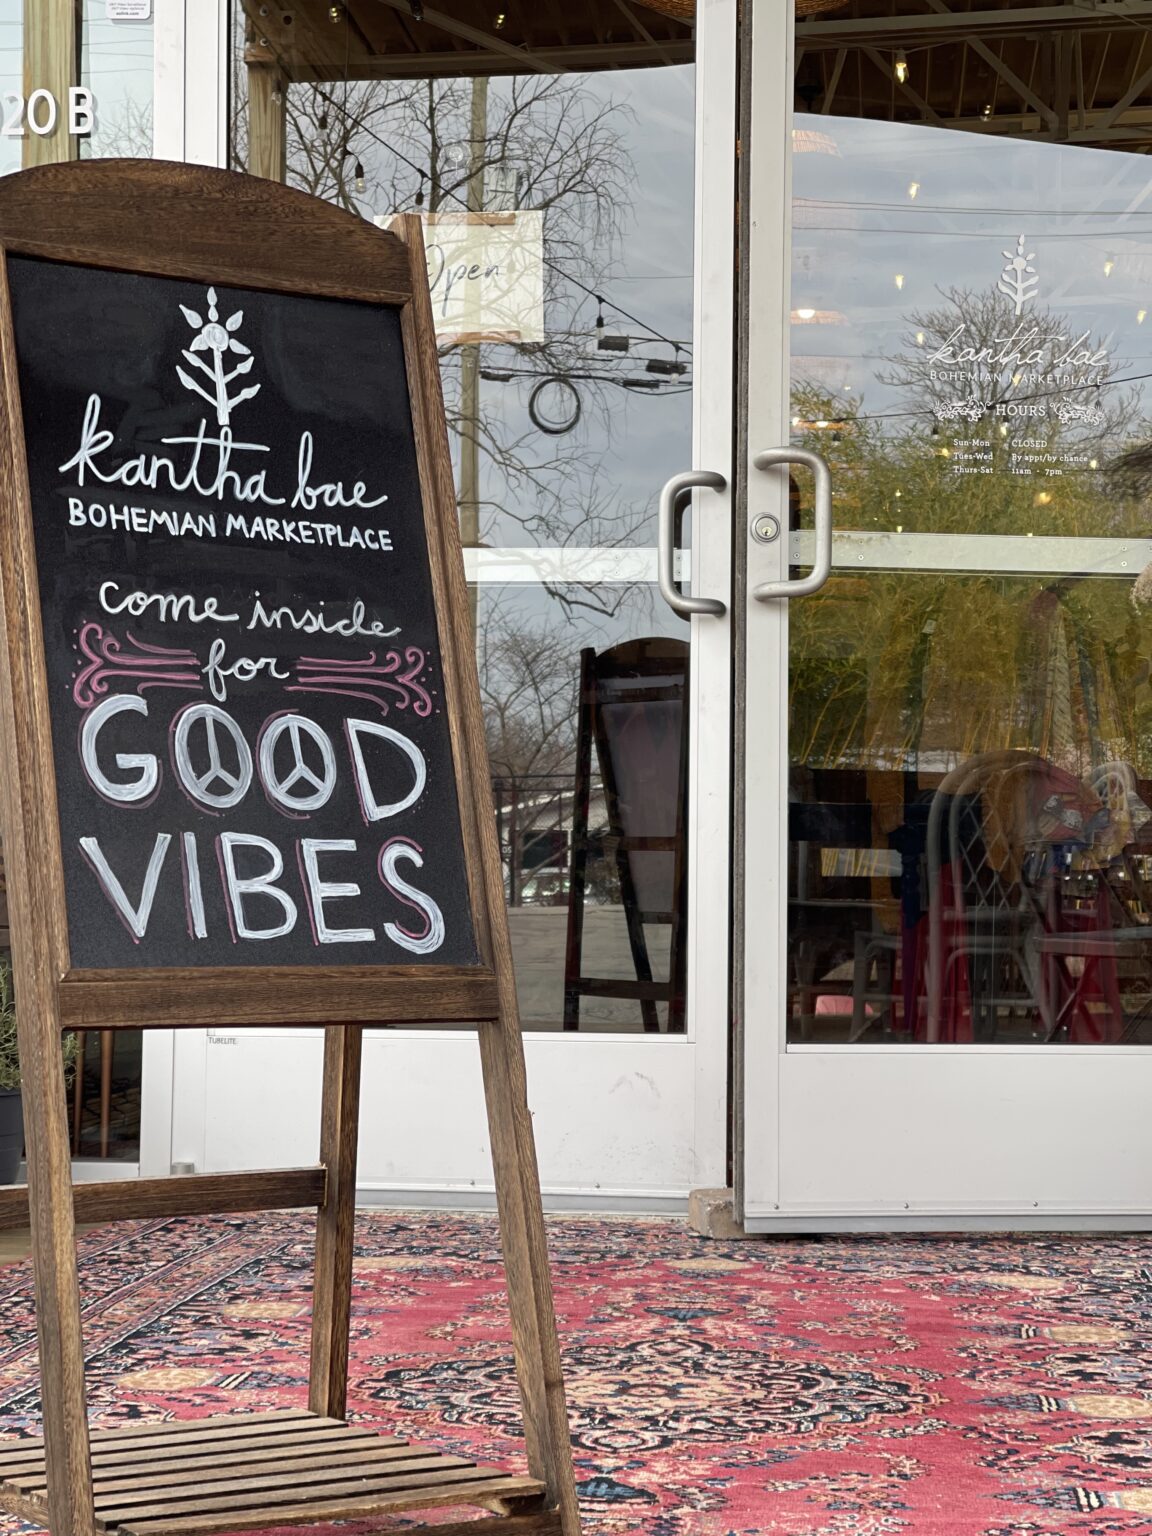 20 B
Open
kantha bae
BOHEMIAN MARKETPLACE
come inside
for
GOOD
VIBES
kantha bae
BOHEMIAN MARKETPLACE
HOURS
Sun-Mon CLOSED
Tues-Wed By appt/by chance
Thurs-Sat 11am - 7pm
TUBELITE